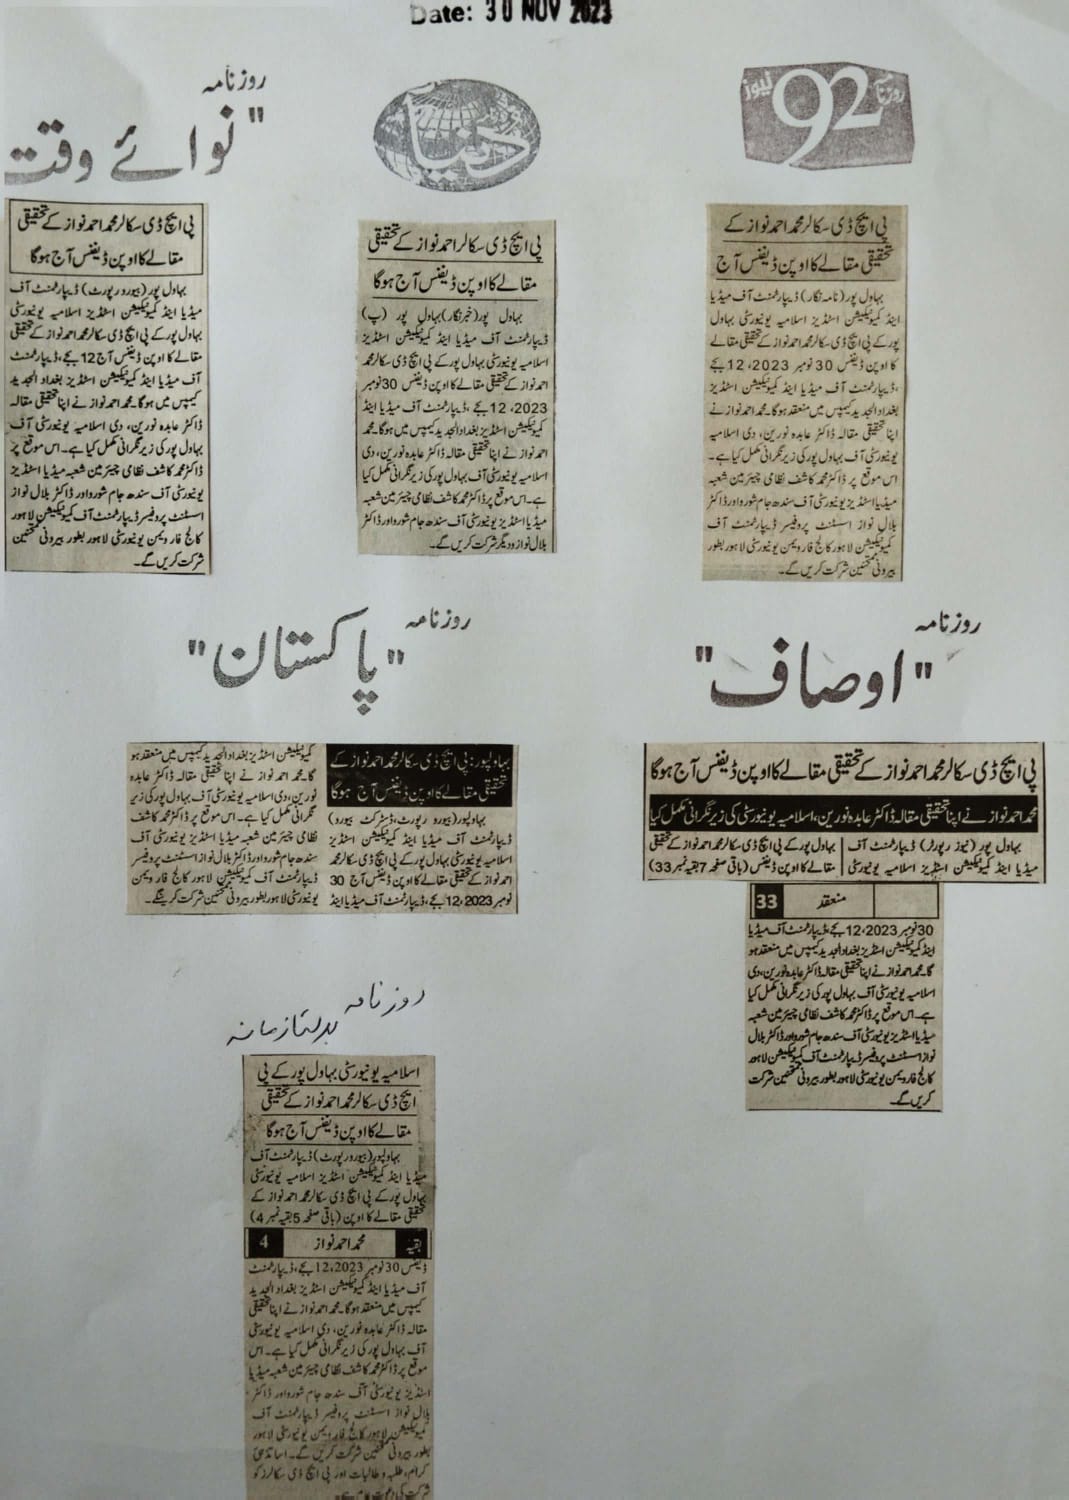 Date: 30 NOV 2023
روزنامہ
"نوائے وقت
پی ایچ ڈی سکالر محمد احمد نواز کے تحقیقی
مقالے کا اوپن ڈیفنس آج ہوگا
بہاول پور (بیورورپورٹ) ڈیپارٹمنٹ آف
میڈیا اینڈ کمیونیکیشن اسٹڈیز اسلامیہ یونیورسٹی
بہاول پور کے پی ایچ ڈی سکالر محمد احمد نواز کے تحقیقی
مقالے کا اوپن ڈیفنس آج 12 بجے، ڈیپارٹمنٹ
آف میڈیا اینڈ کمیونیکیشن اسٹڈیز بغداد الجدید
کیمپس میں ہوگا۔ محمد احمد نواز نے اپنا تحقیقی مقالہ
ڈاکٹر عابدہ نورین، دی اسلامیہ یونیورسٹی آف
بہاول پور کی زیر نگرانی مکمل کیا ہے۔ اس موقع پر
ڈاکٹر محمد کاشف نظامی چیئرمین شعبہ میڈیا اسٹڈیز
یونیورسٹی آف سندھ جام شورو اور ڈاکٹر بلال نواز
اسسٹنٹ پروفیسر ڈیپارٹمنٹ آف کمیونیکیشن لاہور
کالج فار ویمن یونیورسٹی لاہور بطور بیرونی ممتحنین
شرکت کریں گے۔
دنیا
پی ایچ ڈی سکالر احمد نواز کے تحقیقی
مقالے کا اوپن ڈیفنس آج ہوگا
بہاول پور (خبرنگار) بہاول پور (پ)
ڈیپارٹمنٹ آف میڈیا اینڈ کمیونیکیشن اسٹڈیز
اسلامیہ یونیورسٹی بہاول پور کے پی ایچ ڈی سکالر محمد
احمد نواز کے تحقیقی مقالے کا اوپن ڈیفنس 30 نومبر
2023، 12 بجے، ڈیپارٹمنٹ آف میڈیا اینڈ
کمیونیکیشن اسٹڈیز بغداد الجدید کیمپس میں ہوگا۔ محمد
احمد نواز نے اپنا تحقیقی مقالہ ڈاکٹر عابدہ نورین، دی
اسلامیہ یونیورسٹی آف بہاول پور کی زیر نگرانی مکمل کیا
ہے۔ اس موقع پر ڈاکٹر محمد کاشف نظامی چیئرمین شعبہ
میڈیا اسٹڈیز یونیورسٹی آف سندھ جام شورو اور ڈاکٹر
بلال نواز و دیگر شرکت کریں گے۔
روزنامہ 92 نیوز
پی ایچ ڈی سکالر محمد احمد نواز کے
تحقیقی مقالے کا اوپن ڈیفنس آج
بہاول پور (نامہ نگار) ڈیپارٹمنٹ آف میڈیا
اینڈ کمیونیکیشن اسٹڈیز اسلامیہ یونیورسٹی بہاول
پور کے پی ایچ ڈی سکالر محمد احمد نواز کے تحقیقی مقالے
کا اوپن ڈیفنس 30 نومبر 2023، 12 بجے
، ڈیپارٹمنٹ آف میڈیا اینڈ کمیونیکیشن اسٹڈیز
بغداد الجدید کیمپس میں منعقد ہوگا۔ محمد احمد نواز نے
اپنا تحقیقی مقالہ ڈاکٹر عابدہ نورین، دی اسلامیہ
یونیورسٹی آف بہاول پور کی زیر نگرانی مکمل کیا ہے۔
اس موقع پر ڈاکٹر محمد کاشف نظامی چیئرمین شعبہ
میڈیا اسٹڈیز یونیورسٹی آف سندھ جام شورو اور ڈاکٹر
بلال نواز اسسٹنٹ پروفیسر ڈیپارٹمنٹ آف
کمیونیکیشن لاہور کالج فار ویمن یونیورسٹی لاہور بطور
بیرونی ممتحنین شرکت کریں گے۔
روزنامہ
"پاکستان"
بہاولپور: پی ایچ ڈی سکالر محمد احمد نواز کے
تحقیقی مقالے کا اوپن ڈیفنس آج ہوگا
بہاولپور (بیورو رپورٹ، ڈسٹرکٹ بیورو)
ڈیپارٹمنٹ آف میڈیا اینڈ کمیونیکیشن اسٹڈیز
اسلامیہ یونیورسٹی بہاول پور کے پی ایچ ڈی سکالر محمد
احمد نواز کے تحقیقی مقالے کا اوپن ڈیفنس آج 30
نومبر 2023، 12 بجے، ڈیپارٹمنٹ آف میڈیا اینڈ
کمیونیکیشن اسٹڈیز بغداد الجدید کیمپس میں منعقد ہو
گا۔ محمد احمد نواز نے اپنا تحقیقی مقالہ ڈاکٹر عابدہ
نورین، دی اسلامیہ یونیورسٹی آف بہاول پور کی زیر
نگرانی مکمل کیا ہے۔ اس موقع پر ڈاکٹر محمد کاشف
نظامی چیئرمین شعبہ میڈیا اسٹڈیز یونیورسٹی آف
سندھ جام شورو اور ڈاکٹر بلال نواز اسسٹنٹ پروفیسر
ڈیپارٹمنٹ آف کمیونیکیشن لاہور کالج فار ویمن
یونیورسٹی لاہور بطور بیرونی ممتحنین شرکت کرینگے۔
روزنامہ
"اوصاف"
پی ایچ ڈی سکالر محمد احمد نواز کے تحقیقی مقالے کا اوپن ڈیفنس آج ہوگا
محمد احمد نواز نے اپنا تحقیقی مقالہ ڈاکٹر عابدہ نورین، اسلامیہ یونیورسٹی کی زیر نگرانی مکمل کیا
بہاول پور (نیوز رپورٹر) ڈیپارٹمنٹ آف
میڈیا اینڈ کمیونیکیشن اسٹڈیز اسلامیہ یونیورسٹی
بہاول پور کے پی ایچ ڈی سکالر محمد احمد نواز کے تحقیقی
مقالے کا اوپن ڈیفنس (باقی صفحہ 7 بقیہ نمبر 33)
منعقد 33
30 نومبر 2023، 12 بجے، ڈیپارٹمنٹ آف میڈیا
اینڈ کمیونیکیشن اسٹڈیز بغداد الجدید کیمپس میں منعقد ہو
گا۔ محمد احمد نواز نے اپنا تحقیقی مقالہ ڈاکٹر عابدہ نورین، دی
اسلامیہ یونیورسٹی آف بہاول پور کی زیر نگرانی مکمل کیا
ہے۔ اس موقع پر ڈاکٹر محمد کاشف نظامی چیئرمین شعبہ
میڈیا اسٹڈیز یونیورسٹی آف سندھ جام شورو اور ڈاکٹر بلال
نواز اسسٹنٹ پروفیسر ڈیپارٹمنٹ آف کمیونیکیشن لاہور
کالج فار ویمن یونیورسٹی لاہور بطور بیرونی ممتحنین شرکت
کریں گے۔
روزنامہ
بدلتا زمانہ
اسلامیہ یونیورسٹی بہاول پور کے پی
ایچ ڈی سکالر محمد احمد نواز کے تحقیقی
مقالے کا اوپن ڈیفنس آج ہوگا
بہاولپور (بیورو رپورٹ) ڈیپارٹمنٹ آف
میڈیا اینڈ کمیونیکیشن اسٹڈیز اسلامیہ یونیورسٹی
بہاول پور کے پی ایچ ڈی سکالر محمد احمد نواز کے
تحقیقی مقالے کا اوپن (باقی صفحہ 5 بقیہ نمبر 4)
بقیہ محمد احمد نواز 4
ڈیفنس 30 نومبر 2023، 12 بجے، ڈیپارٹمنٹ
آف میڈیا اینڈ کمیونیکیشن اسٹڈیز بغداد الجدید
کیمپس میں منعقد ہوگا۔ محمد احمد نواز نے اپنا تحقیقی
مقالہ ڈاکٹر عابدہ نورین، دی اسلامیہ یونیورسٹی
آف بہاول پور کی زیر نگرانی مکمل کیا ہے۔ اس
موقع پر ڈاکٹر محمد کاشف نظامی چیئرمین شعبہ میڈیا
اسٹڈیز یونیورسٹی آف سندھ جام شورو اور ڈاکٹر
بلال نواز اسسٹنٹ پروفیسر ڈیپارٹمنٹ آف
کمیونیکیشن لاہور کالج فار ویمن یونیورسٹی لاہور
بطور بیرونی ممتحنین شرکت کریں گے۔ اساتذہ
کرام، طلبہ و طالبات اور پی ایچ ڈی سکالرز کو
شرکت کی دعوت عام ہے۔